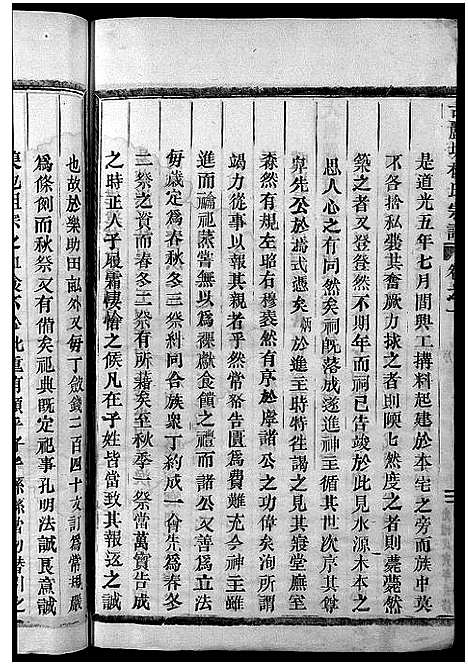 是道光五年七月間興工搆料起建於本宅之旁而族中莫
不各捨私裝其奮厥力捄之者則陾陾然度之者則薨薨然
築之者又登登然不期年而祠已告竣於此見水源木本之
思人心之有同然矣祠既落成遂進神主循其世次序其尊
卑先公於焉式憑矣炳於進主時特往謁之見其寢堂廡室
森然爽然昭右穆左秩然有序於諸公之功偉矣洵所謂
竭力從事以敬享祀矣然常務告匱為費難充今神主雖
進而禴祀烝嘗無以為祼獻食饋之禮而諸公又從為立法
每歲定為春秋冬三祭糾同合族眾丁約成一會先為春冬
二祭之資而春冬二祭有所藉矣至秋季一祭當萬寶告成
之時正人子履霜悽愴之候凡在子姓皆當致其報返之誠
也故於樂助田畝外又每丁斂錢二百四十文訂為常規嚴
為條例而秋祭又有備矣祀典既定祀事孔明法誠良意誠